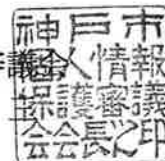 神戸市
人情報
保護審議
会会長之印